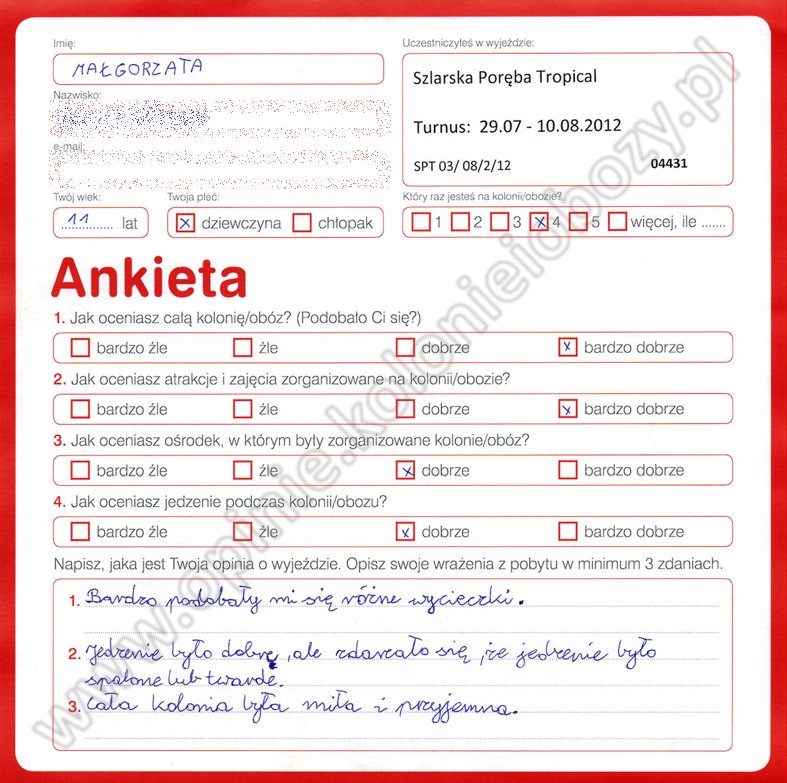 Imię:
MAŁGORZATA
Uczestniczyłeś w wyjeździe:
Szlarska Poręba Tropical
Turnus: 29.07 - 10.08.2012
SPT 03/ 08/2/12 04431
Nazwisko:
e-mail:
Twój wiek:
11 lat
Twoja płeć:
x dziewczyna chłopak
Który raz jesteś na kolonii/obozie?
1 2 3 x 4 5 więcej, ile .......
Ankieta
1. Jak oceniasz całą kolonię/obóz? (Podobało Ci się?)
bardzo źle źle dobrze x bardzo dobrze
2. Jak oceniasz atrakcje i zajęcia zorganizowane na kolonii/obozie?
bardzo źle źle dobrze x bardzo dobrze
3. Jak oceniasz ośrodek, w którym były zorganizowane kolonie/obóz?
bardzo źle źle x dobrze bardzo dobrze
4. Jak oceniasz jedzenie podczas kolonii/obozu?
bardzo źle źle x dobrze bardzo dobrze
Napisz, jaka jest Twoja opinia o wyjeździe. Opisz swoje wrażenia z pobytu w minimum 3 zdaniach.
1. Bardzo podobały mi się różne wycieczki.
2. Jedzenie było dobre, ale zdarzało się, że jedzenie było
spalone lub twarde.
3. Cała kolonia była miła i przyjemna.
www.opinie.kolonieiobozy.pl